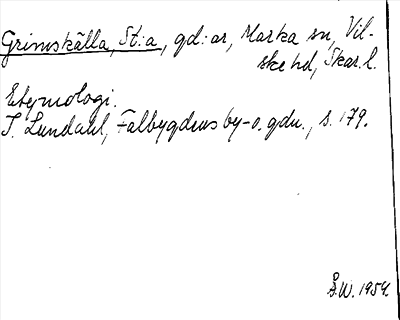 Grimskälla, St:a, gd:ar, Marka sn, Vil-
ske hd, Skar. l.
Etymologi.
I. Lundahl, Falbygdens by-o. gdn., s. 179.
Å.W. 1954.